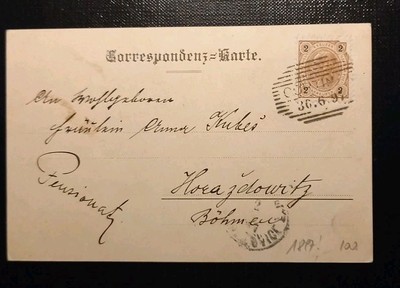 Correspondenz-Karte.
2 2
2 2
30.6.97
An Wohlgeboren
Fräulein Anna Kubeš
Pensionat
Horaždowitz
Böhmen
1897! 102